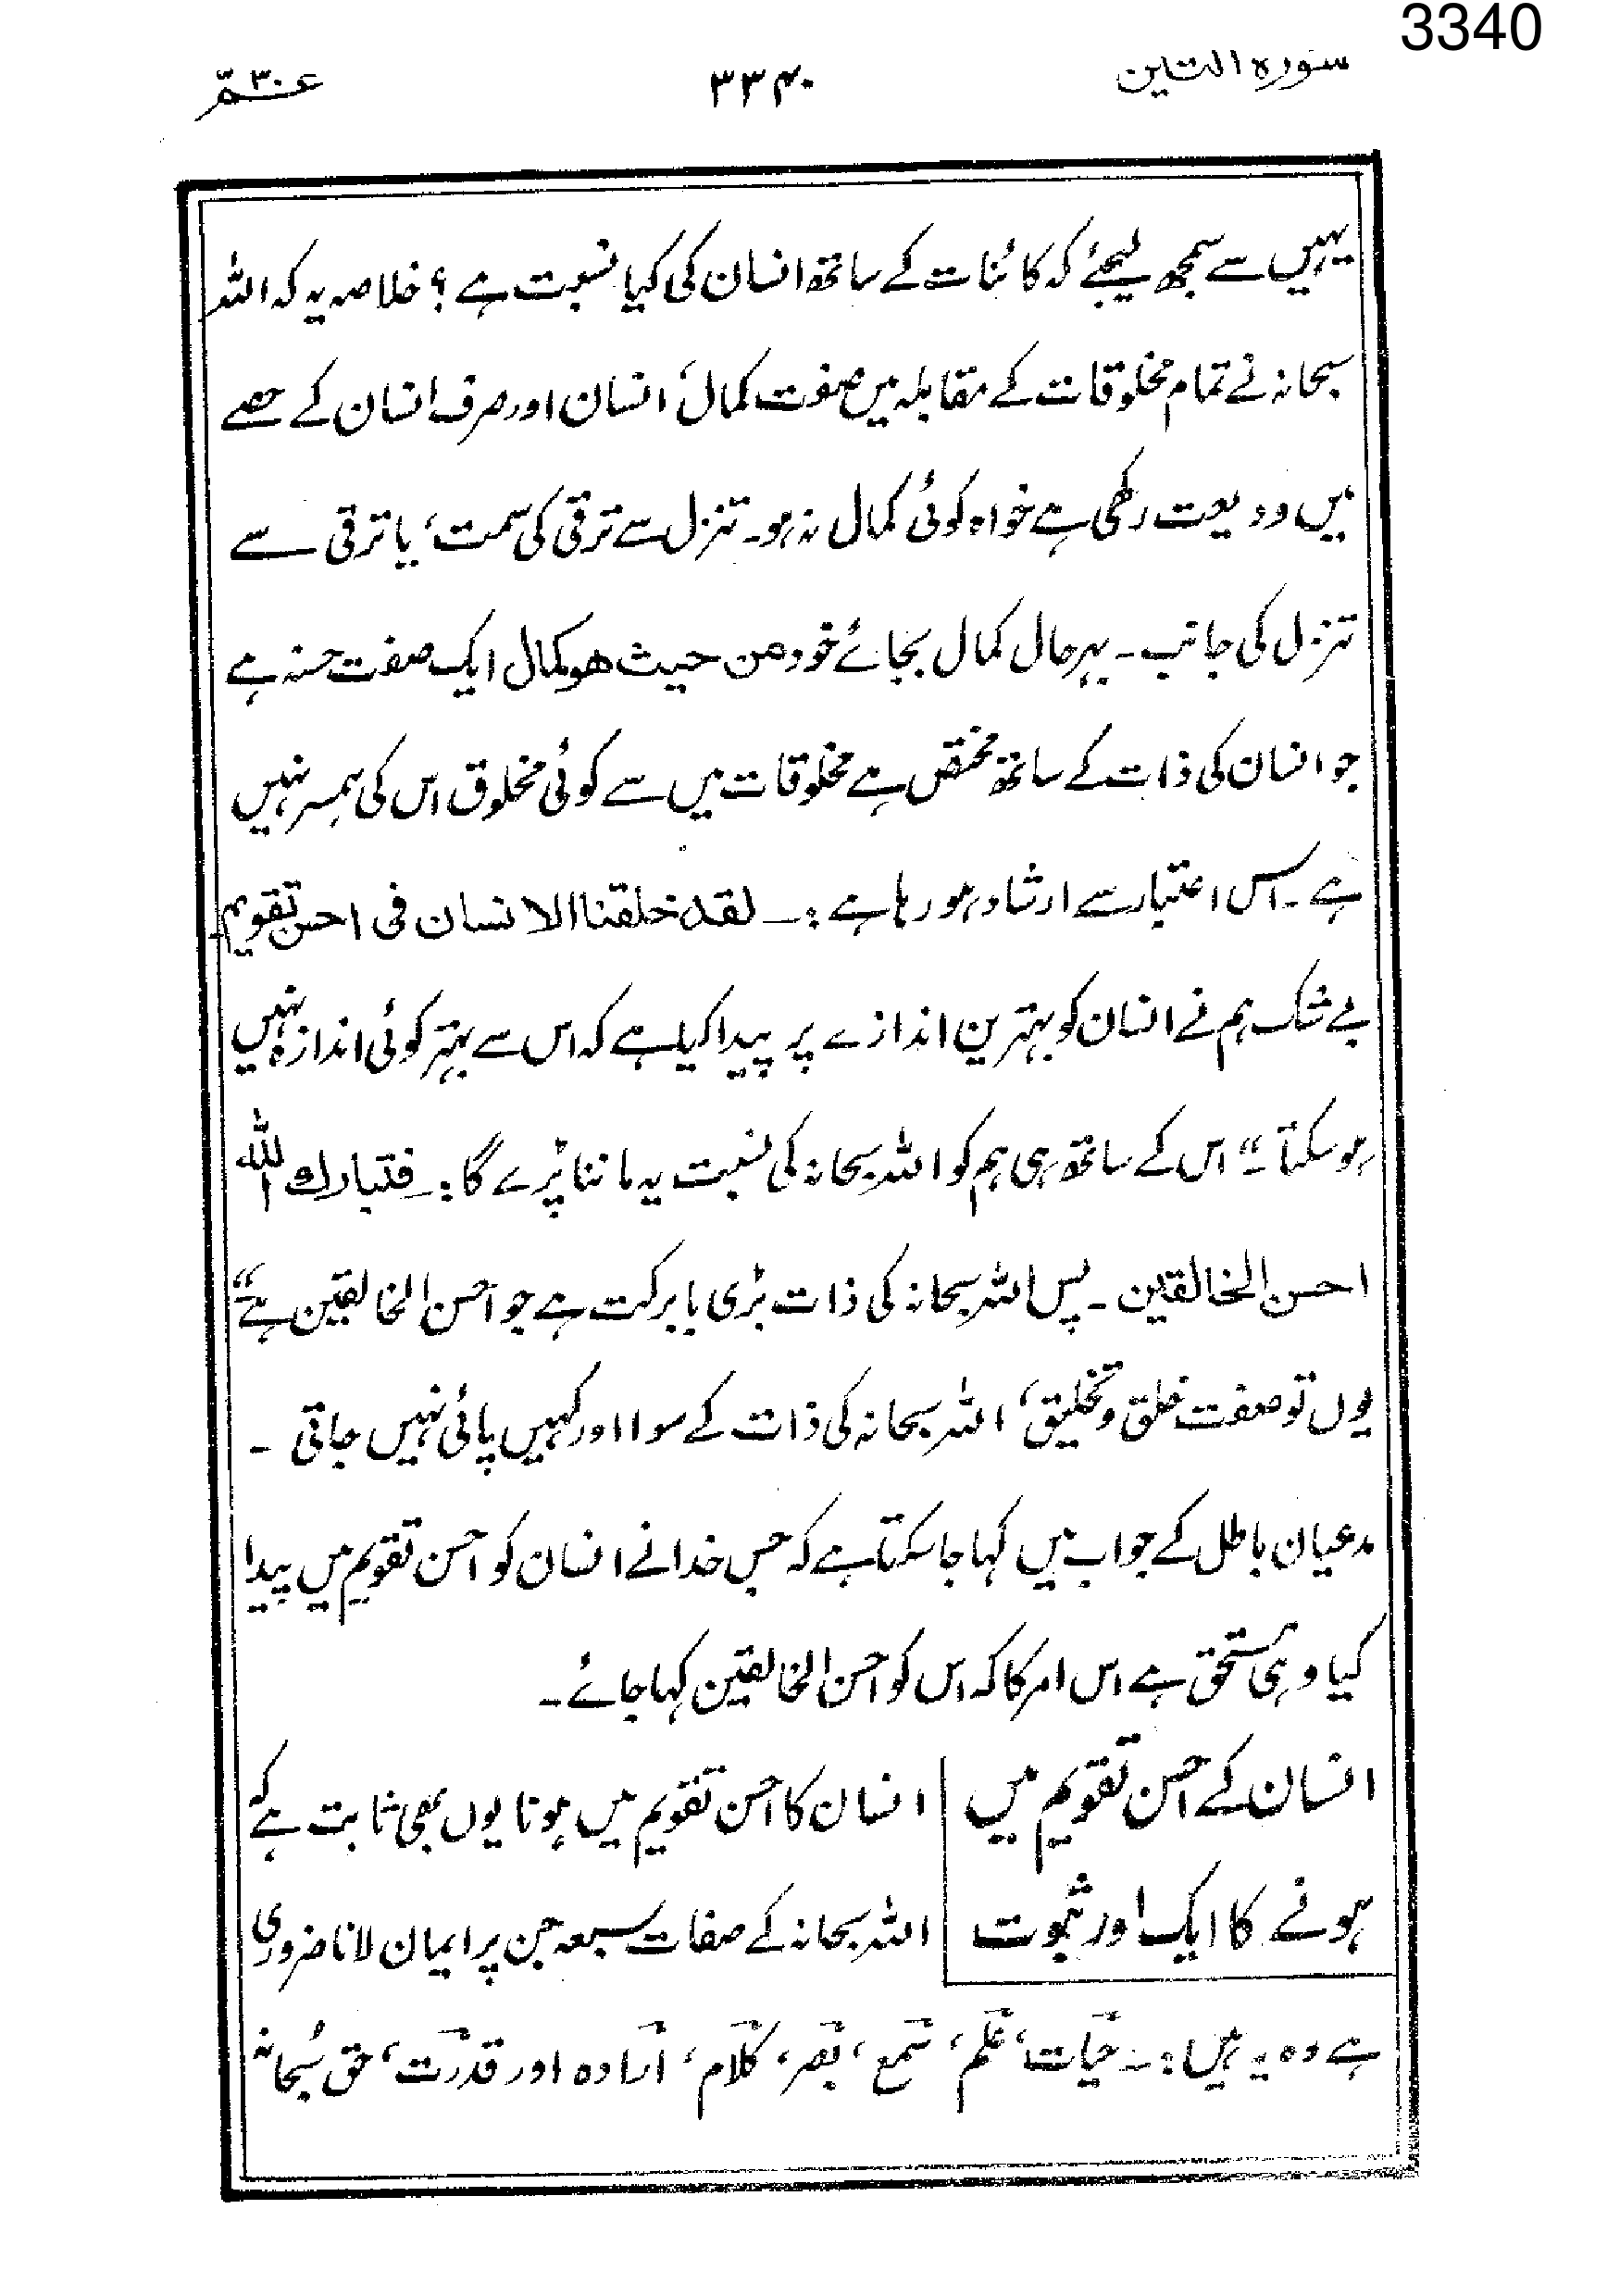 3340
سورہ التین ۳۳۴۰ عمّ ۳۰
یہیں سے سمجھ لیجئے کہ کائنات کے ساتھ انسان کی کیا نسبت ہے؟ خلاصہ یہ کہ اللہ
سبحانہ نے تمام مخلوقات کے مقابلہ میں صفت کمال، انسان اور صرف انسان کے حصے
میں ودیعت رکھی ہے خواہ کوئی کمال نہ ہو۔ تنزل سے ترقی کی سمت، یا ترقی سے
تنزل کی جانب۔ بہرحال کمال بجائے خود من حیث ھو کمال ایک صفت حسنہ ہے
جو انسان کی ذات کے ساتھ مختص ہے مخلوقات میں سے کوئی مخلوق اس کی ہمسر نہیں
ہے۔ اس اعتبار سے ارشاد ہو رہا ہے:۔ لقد خلقنا الانسان فی احسن تقویم۔
بے شک ہم نے انسان کو بہترین اندازے پر پیدا کیا ہے کہ اس سے بہتر کوئی اندازہ نہیں
ہو سکتا۔“ اس کے ساتھ ہی ہم کو اللہ سبحانہ کی نسبت یہ ماننا پڑے گا:۔ فتبارك اللہ
احسن الخالقین۔ پس اللہ سبحانہ کی ذات بڑی بابرکت ہے جو احسن الخالقین ہے“
یوں تو صفت خلق و تخلیق، اللہ سبحانہ کی ذات کے سوا اور کہیں پائی نہیں جاتی۔
مدعیان باطل کے جواب میں کہا جا سکتا ہے کہ جس خدا نے انسان کو احسن تقویم میں پیدا
کیا وہی مستحق ہے اس امر کا کہ اس کو احسن الخالقین کہا جائے۔
انسان کے احسن تقویم میں انسان کا احسن تقویم میں ہونا یوں بھی ثابت ہے کہ
ہونے کا ایک اور ثبوت اللہ سبحانہ کے صفات سبعہ جن پر ایمان لانا ضروری
ہے وہ یہ ہیں:۔ حیات، علم، سمع، بصر، کلام، ارادہ اور قدرت، حق سُبحانہ